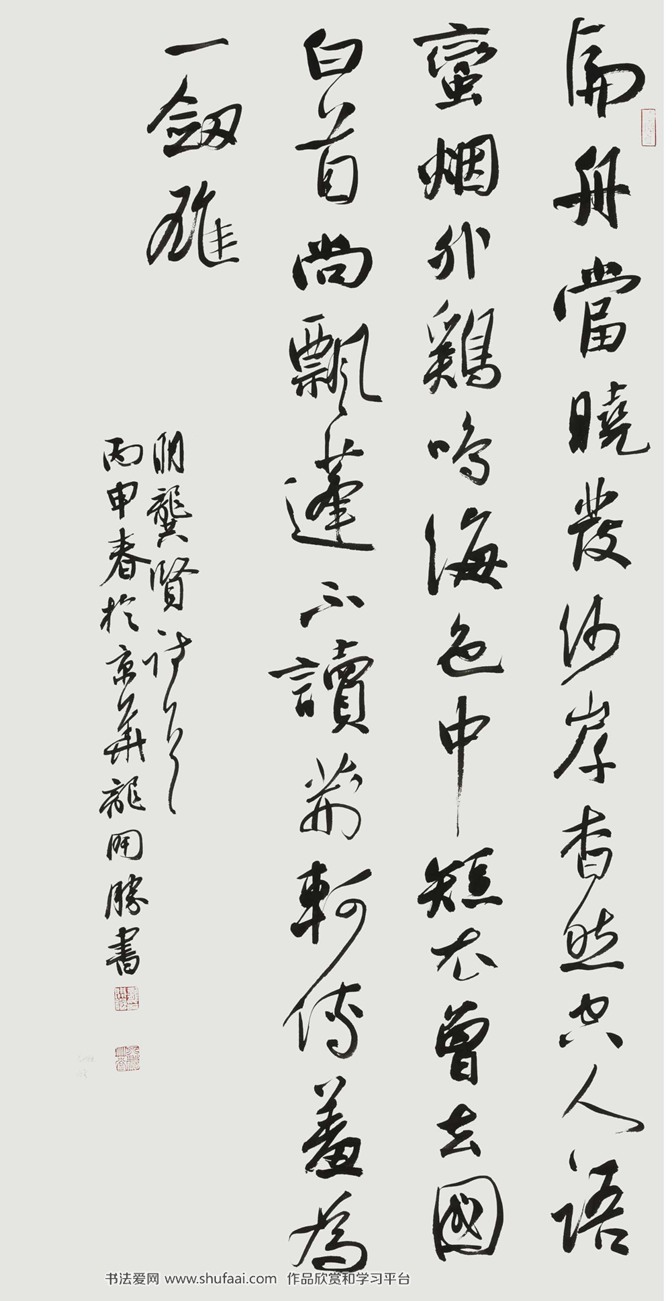 扁舟當曉發沙岸杳然空人語
蠻烟外鷄鳴海色中短衣曾去國
白首尚飄蓬不讀荆軻傳羞為
一劔雄
明龔賢詩一首
丙申春於京華龍開勝書
书法爱网 www.shufaai.com 作品欣赏和学习平台